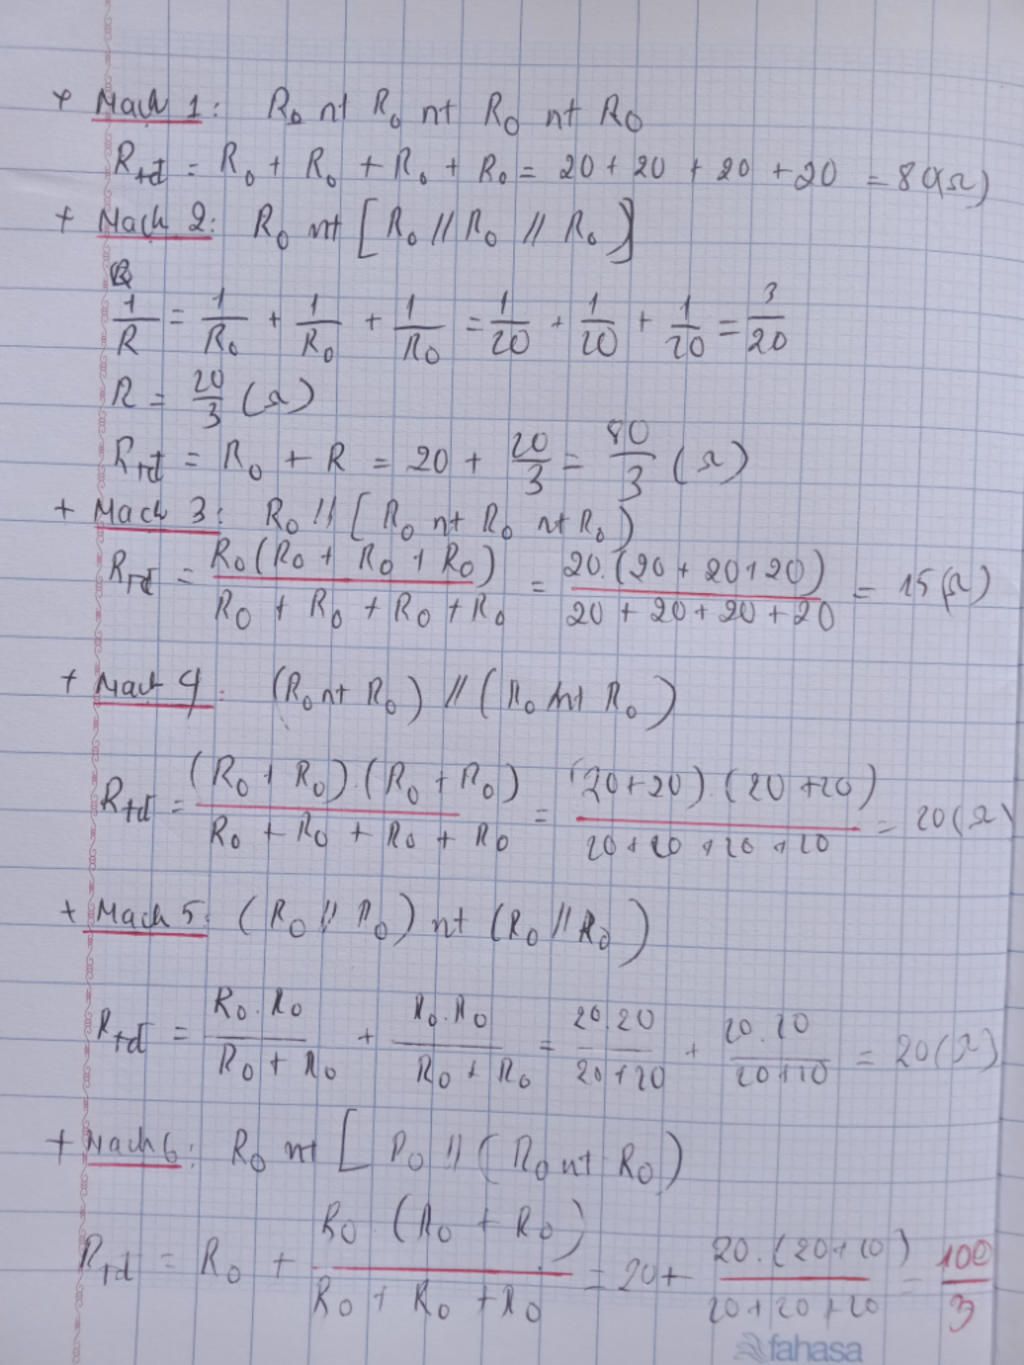 + Mạch 1: R₀ nt R₀ nt R₀ nt R₀
Rtđ = R₀ + R₀ + R₀ + R₀ = 20 + 20 + 20 + 20 = 80(Ω)
+ Mạch 2: R₀ nt [R₀ // R₀ // R₀]
1/R = 1/R₀ + 1/R₀ + 1/R₀ = 1/20 + 1/20 + 1/20 = 3/20
R = 20/3 (Ω)
Rtđ = R₀ + R = 20 + 20/3 = 80/3 (Ω)
+ Mạch 3: R₀ // [R₀ nt R₀ nt R₀)
Rtđ = R₀(R₀ + R₀ + R₀)/R₀ + R₀ + R₀ + R₀ = 20.(20 + 20 + 20)/20 + 20 + 20 + 20 = 15(Ω)
+ Mạch 4: (R₀ nt R₀) // (R₀ nt R₀)
Rtđ = (R₀ + R₀).(R₀ + R₀)/R₀ + R₀ + R₀ + R₀ = (20+20).(20+20)/20+20+20+20 = 20(Ω)
+ Mạch 5: (R₀ // R₀) nt (R₀ // R₀)
Rtđ = R₀.R₀/R₀ + R₀ + R₀.R₀/R₀ + R₀ = 20.20/20+20 + 20.20/20+20 = 20(Ω)
+ Mạch 6: R₀ nt [R₀ // (R₀ nt R₀)
Rtđ = R₀ + R₀.(R₀ + R₀)/R₀ + R₀ + R₀ = 20+ 20.(20+20)/20+20+20 = 100/3
fahasa